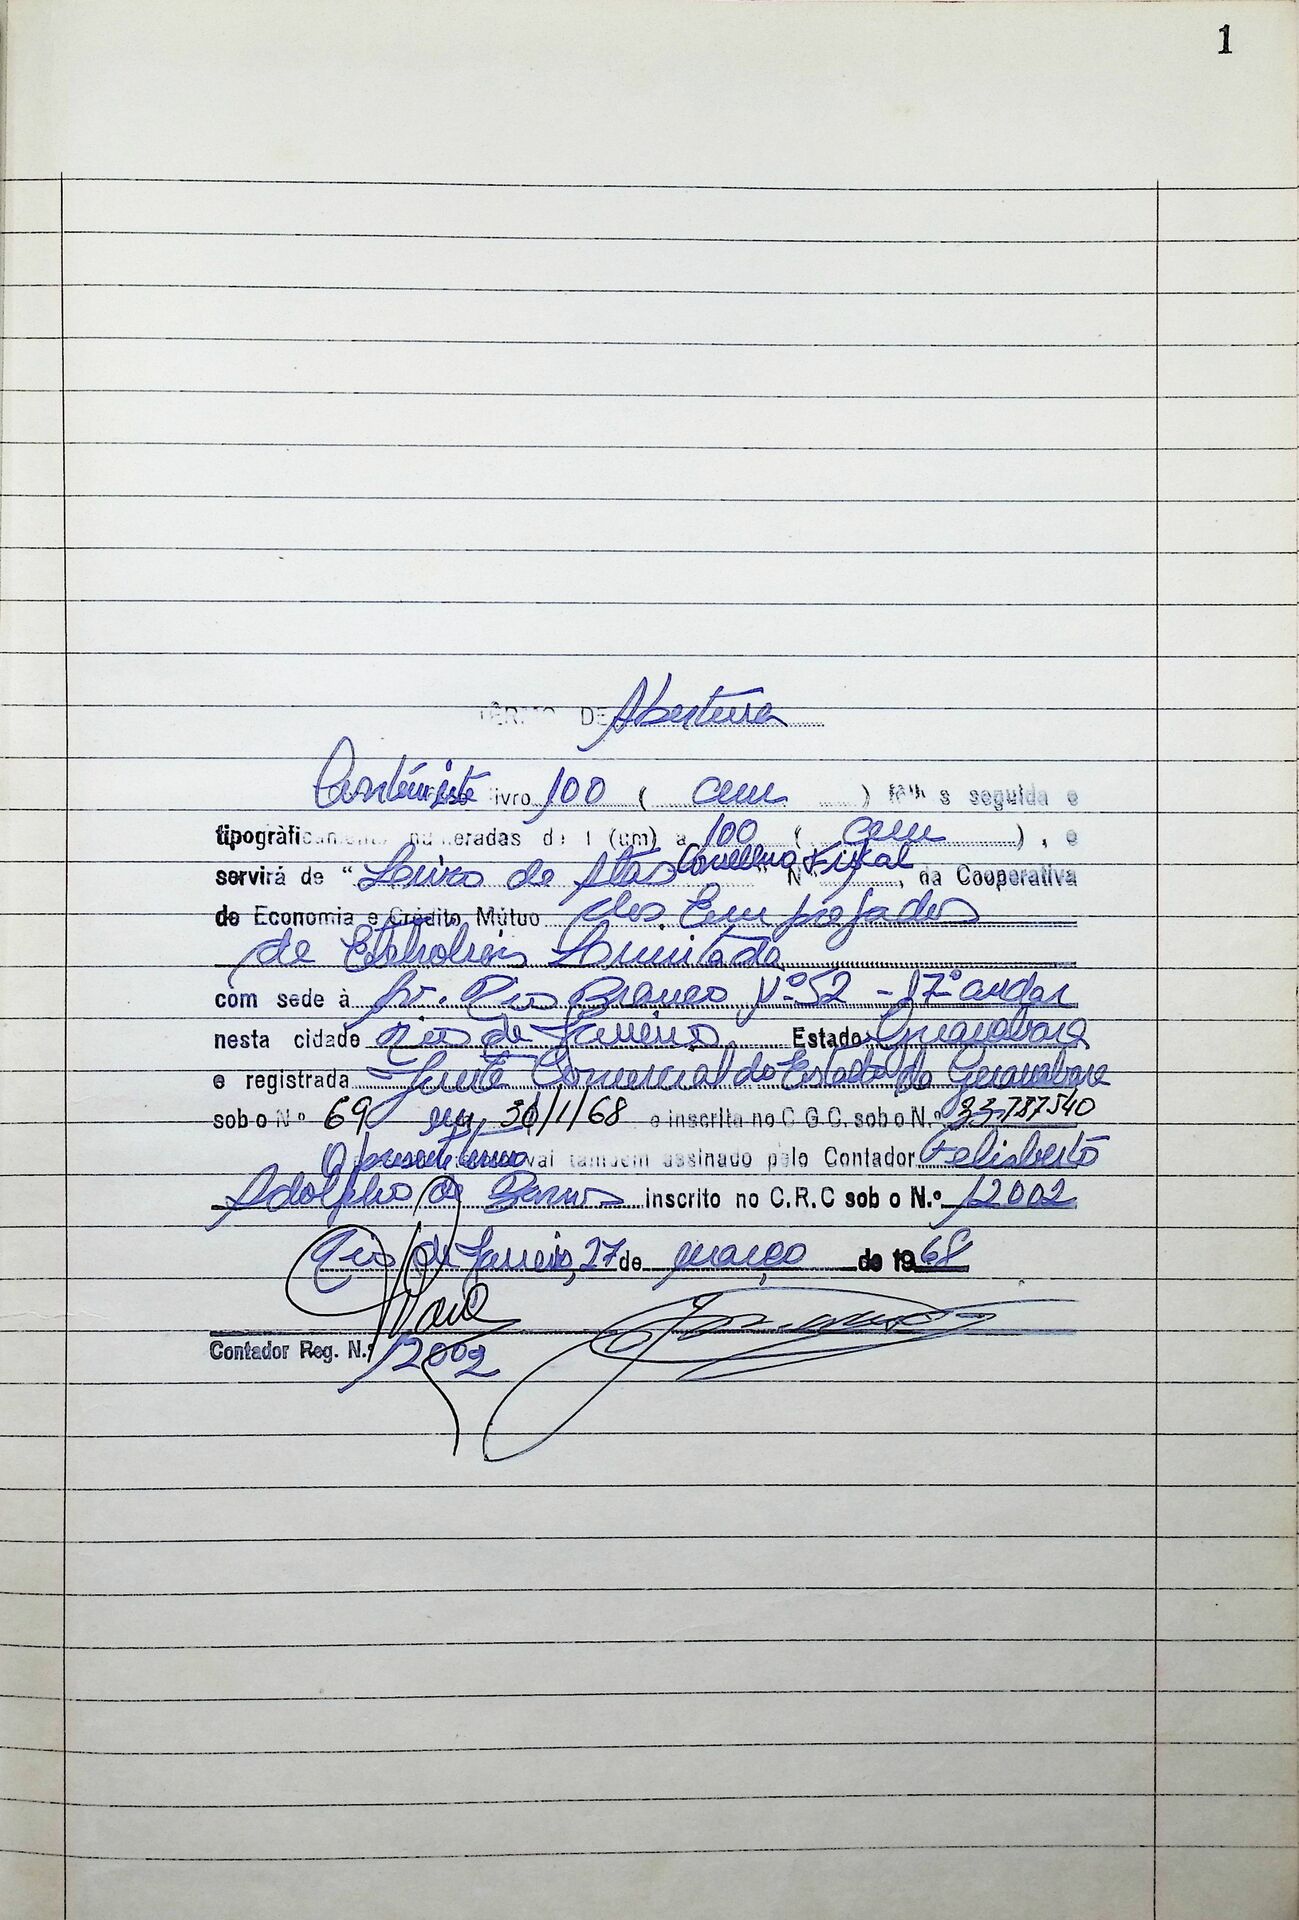 1
TÊRMO DE Abertura
Contém este livro 100 ( cem ) fôlhas seguida e
tipogràficamente numeradas de 1 (um) a 100 ( cem ), e
servirá de "Livro de Atas Conselho Fiskal" N , da Cooperativa
de Economia e Crédito Mútuo dos Empregados
de Eletrobrás Limitada
com sede à Av. Rio Branco Nº 52 - 17º andar
nesta cidade Rio de Janeiro Estado Guanabara
e registrada Junta Comercial do Estado da Guanabara
sob o N.º 69 em, 31/1/68 e inscrita no C.G.C. sob o N.º 33.787540
O presente termo vai também assinado pelo Contador Felisberto
Adolpho de inscrito no C.R.C sob o N.º 12002
Rio de Janeiro, 27 de março de 1968
Contador Reg. N.º 12002